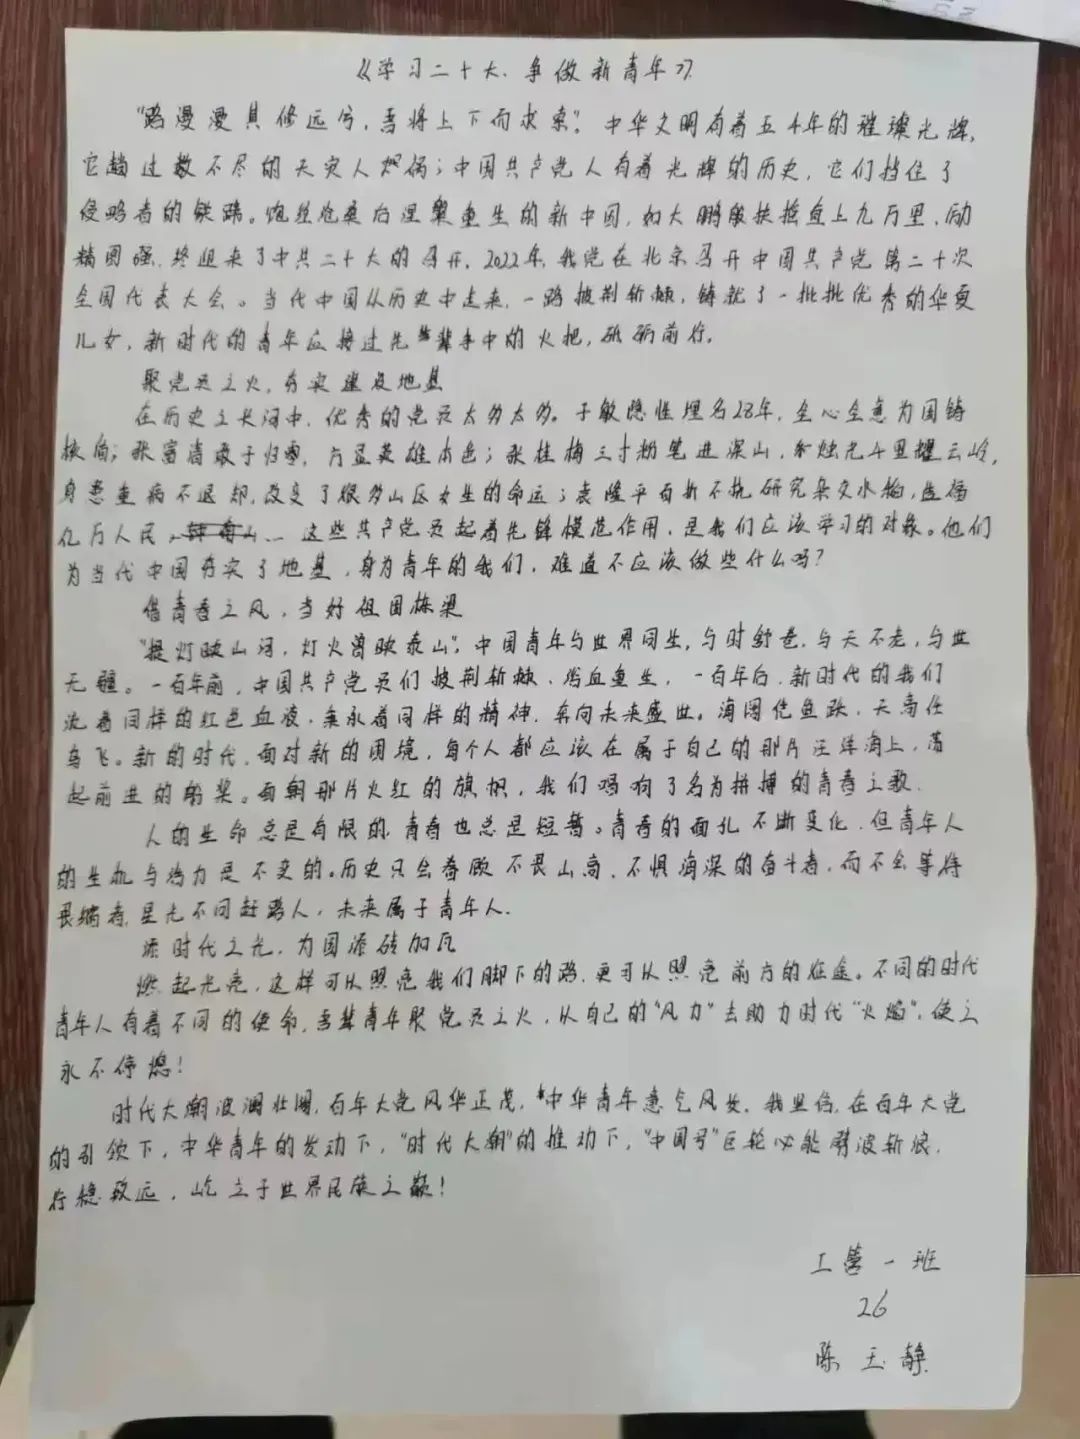 《学习二十大、争做新青年》
“路漫漫其修远兮,吾将上下而求索”。中华文明有着五千年的璀璨光辉,
它趟过数不尽的天灾人祸;中国共产党人有着光辉的历史,它们挡住了
侵略者的铁蹄。饱经沧桑后涅槃重生的新中国,如大鹏般扶摇直上九万里,励
精图强,终迎来了中共二十大的召开,2022年,我党在北京召开中国共产党第二十次
全国代表大会。当代中国从历史中走来,一路披荆斩棘,铸就了一批批优秀的华夏
儿女,新时代的青年应接过先辈手中的火把,砥砺前行。
聚党员之火,夯实建设地基
在历史之长河中,优秀的党员太多太多。于敏隐姓埋名28年,全心全意为国铸
核盾;张富清敢于归零,方显英雄本色;张桂梅三寸粉笔进深山,烛光斗里耀云岭,
身患重病不退却,改变了很多山区女生的命运;袁隆平百折不挠研究杂交水稻,造福
亿万人民……这些共产党员起着先锋模范作用,是我们应该学习的对象。他们
为当代中国夯实了地基,身为青年的我们,难道不应该做些什么吗?
借青春之风,当好祖国栋梁
“提灯映山河,灯火曾映泰山”,中国青年与世界同生,与时舒卷,与天不老,与世
无疆。一百年前,中国共产党员们披荆斩棘,浴血重生,一百年后,新时代的我们
流着同样的红色血液,秉承着同样的精神,奔向未来盛世。海阔凭鱼跃,天高任
鸟飞。新的时代,面对新的困境,每个人都应该在属于自己的那片汪洋海上,荡
起前进的船桨。面朝那片火红的旗帜,我们唱响了名为拼搏的青春之歌.
人的生命总是有限的,青春也总是短暂。青春的面孔不断变化,但青年人
的生机与活力是不变的。历史只会眷顾不畏山高、不惧海深的奋斗者,而不会等待
畏缩者,星光不问赶路人,未来属于青年人.
添时代之光,为国添砖加瓦
燃起光亮,这样可以照亮我们脚下的路,更可以照亮前方的征途。不同的时代
青年人有着不同的使命,吾辈青年聚党员之火,从自己的“风力”去助力时代“火焰”,使之
永不停熄!
时代大潮波澜壮阔,百年大党风华正茂,中华青年意气风发,我坚信,在百年大党
的引领下,中华青年的发动下,“时代大潮”的推动下,“中国号”巨轮必能劈波斩浪,
行稳致远,屹立于世界民族之巅!
工管一班
26
陈玉静